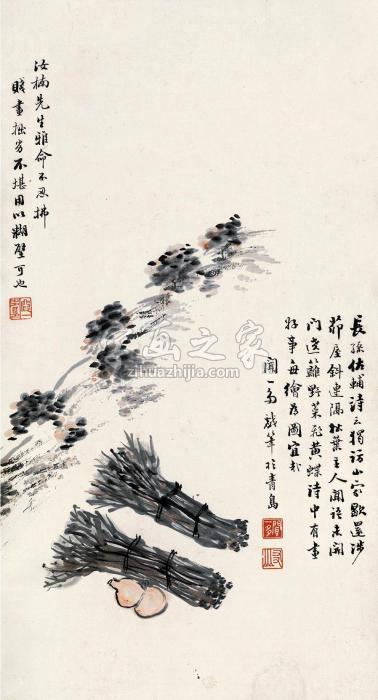 長孫佐輔詩云獨訪山家歇還涉
茆屋斜連隔松葉主人聞語未開
門遶籬野菜飛黃蝶詩中有畫
好事每繪為圖宜哉
聞一多戲筆於青島
汝楠先生雅命不忍拂
賤畫拙劣不堪用以糊壁可也
書画之家
zihuazhijia.com